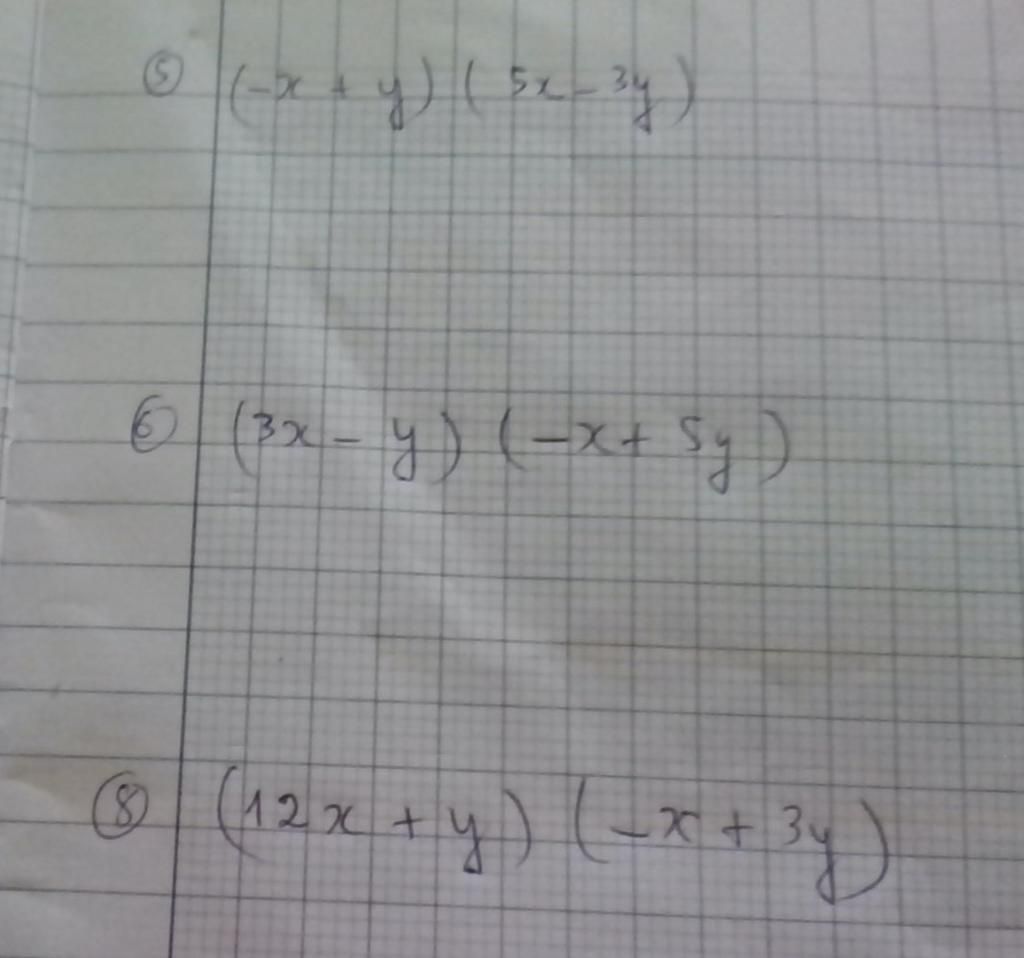 ⑤ (-x + y) (5x - 3y)
⑥ (3x - y) (-x + 5y)
⑧ (12x + y) (-x + 3y)